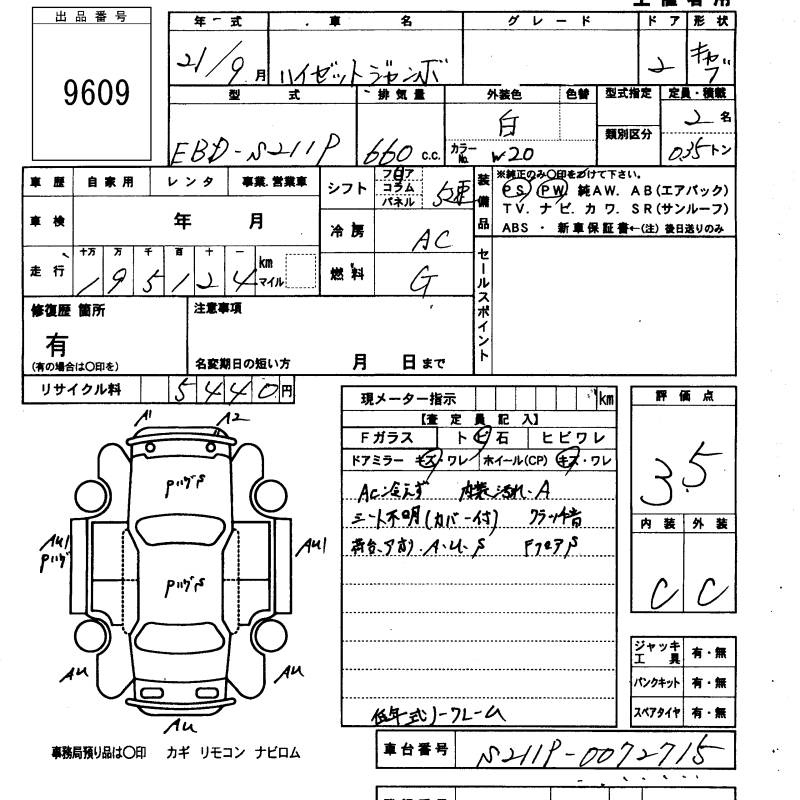 出品番号
9609
年 式 車 名 グレード ドア 形状
21/9月 ハイゼットジャンボ 2 キャブ
型 式 排気量 外装色 色替 型式指定 定員・積載
EBD-S211P 660 c.c. 白 カラーNo. W20 類別区分 2名 0.35トン
車歴 自家用 レンタ 事業.営業車 シフト フロア コラム パネル 5速
装備品 ※純正のみ○印をつけて下さい。
PS PW 純AW. AB(エアバック)
TV. ナビ. カワ. SR(サンルーフ)
ABS ・ 新車保証書←(注) 後日送りのみ
車検 年 月 冷房 AC
走行 十万 万 千 百 十 一
195124 km マイル 燃料 G
セールスポイント
修復歴 箇所 注意事項
有
(有の場合は○印を) 名変期日の短い方 月 日まで
リサイクル料 5440円
現メーター指示 km
【査定員記入】
Fガラス トビ石 ヒビワレ
ドアミラー キズ・ワレ ホイール(CP) キズ・ワレ
AC冷えず 内装汚れ.A
シート不明(カバー付) クラッチ音
荷台、アオリ.A.U.S FフロアS
低年式ノークレーム
評価点
3.5
内装 外装
C C
A1 A2
PサビS
AU1
Pサビ
PサビS
AU1
AU
AU
AU
ジャッキ工具 有・無
パンクキット 有・無
スペアタイヤ 有・無
事務局預り品は○印 カギ リモコン ナビロム
車台番号 S211P-0072715